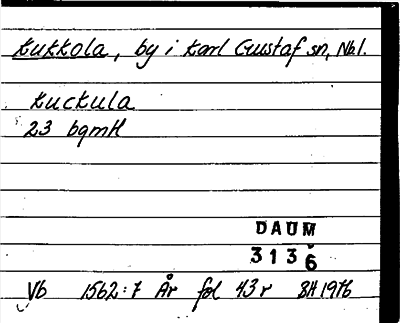 Kukkola, by i Karl Gustaf sn, Nbl.
Kuckula
23 bgmtl
DAUM
3136
Vb 1562:7 År fol 43r BH 1976